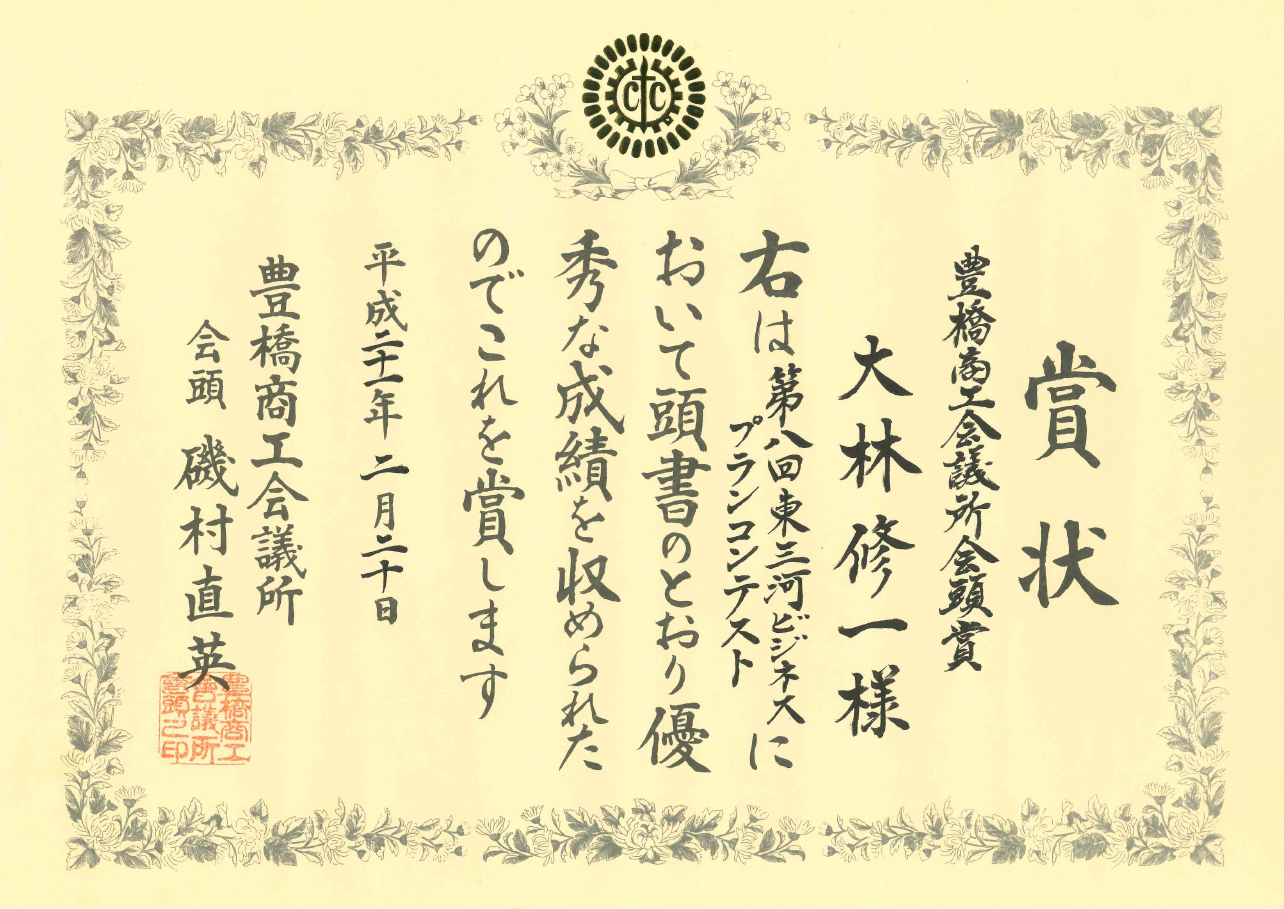 賞状
豊橋商工会議所会頭賞
大林修一様
右は第八回東三河ビジネス
プランコンテストに
おいて頭書のとおり優
秀な成績を収められた
のでこれを賞します
平成二十一年 二月二十日
豊橋商工会議所
会頭 磯村直英
豊橋商工
会議所
会頭之印
CIC